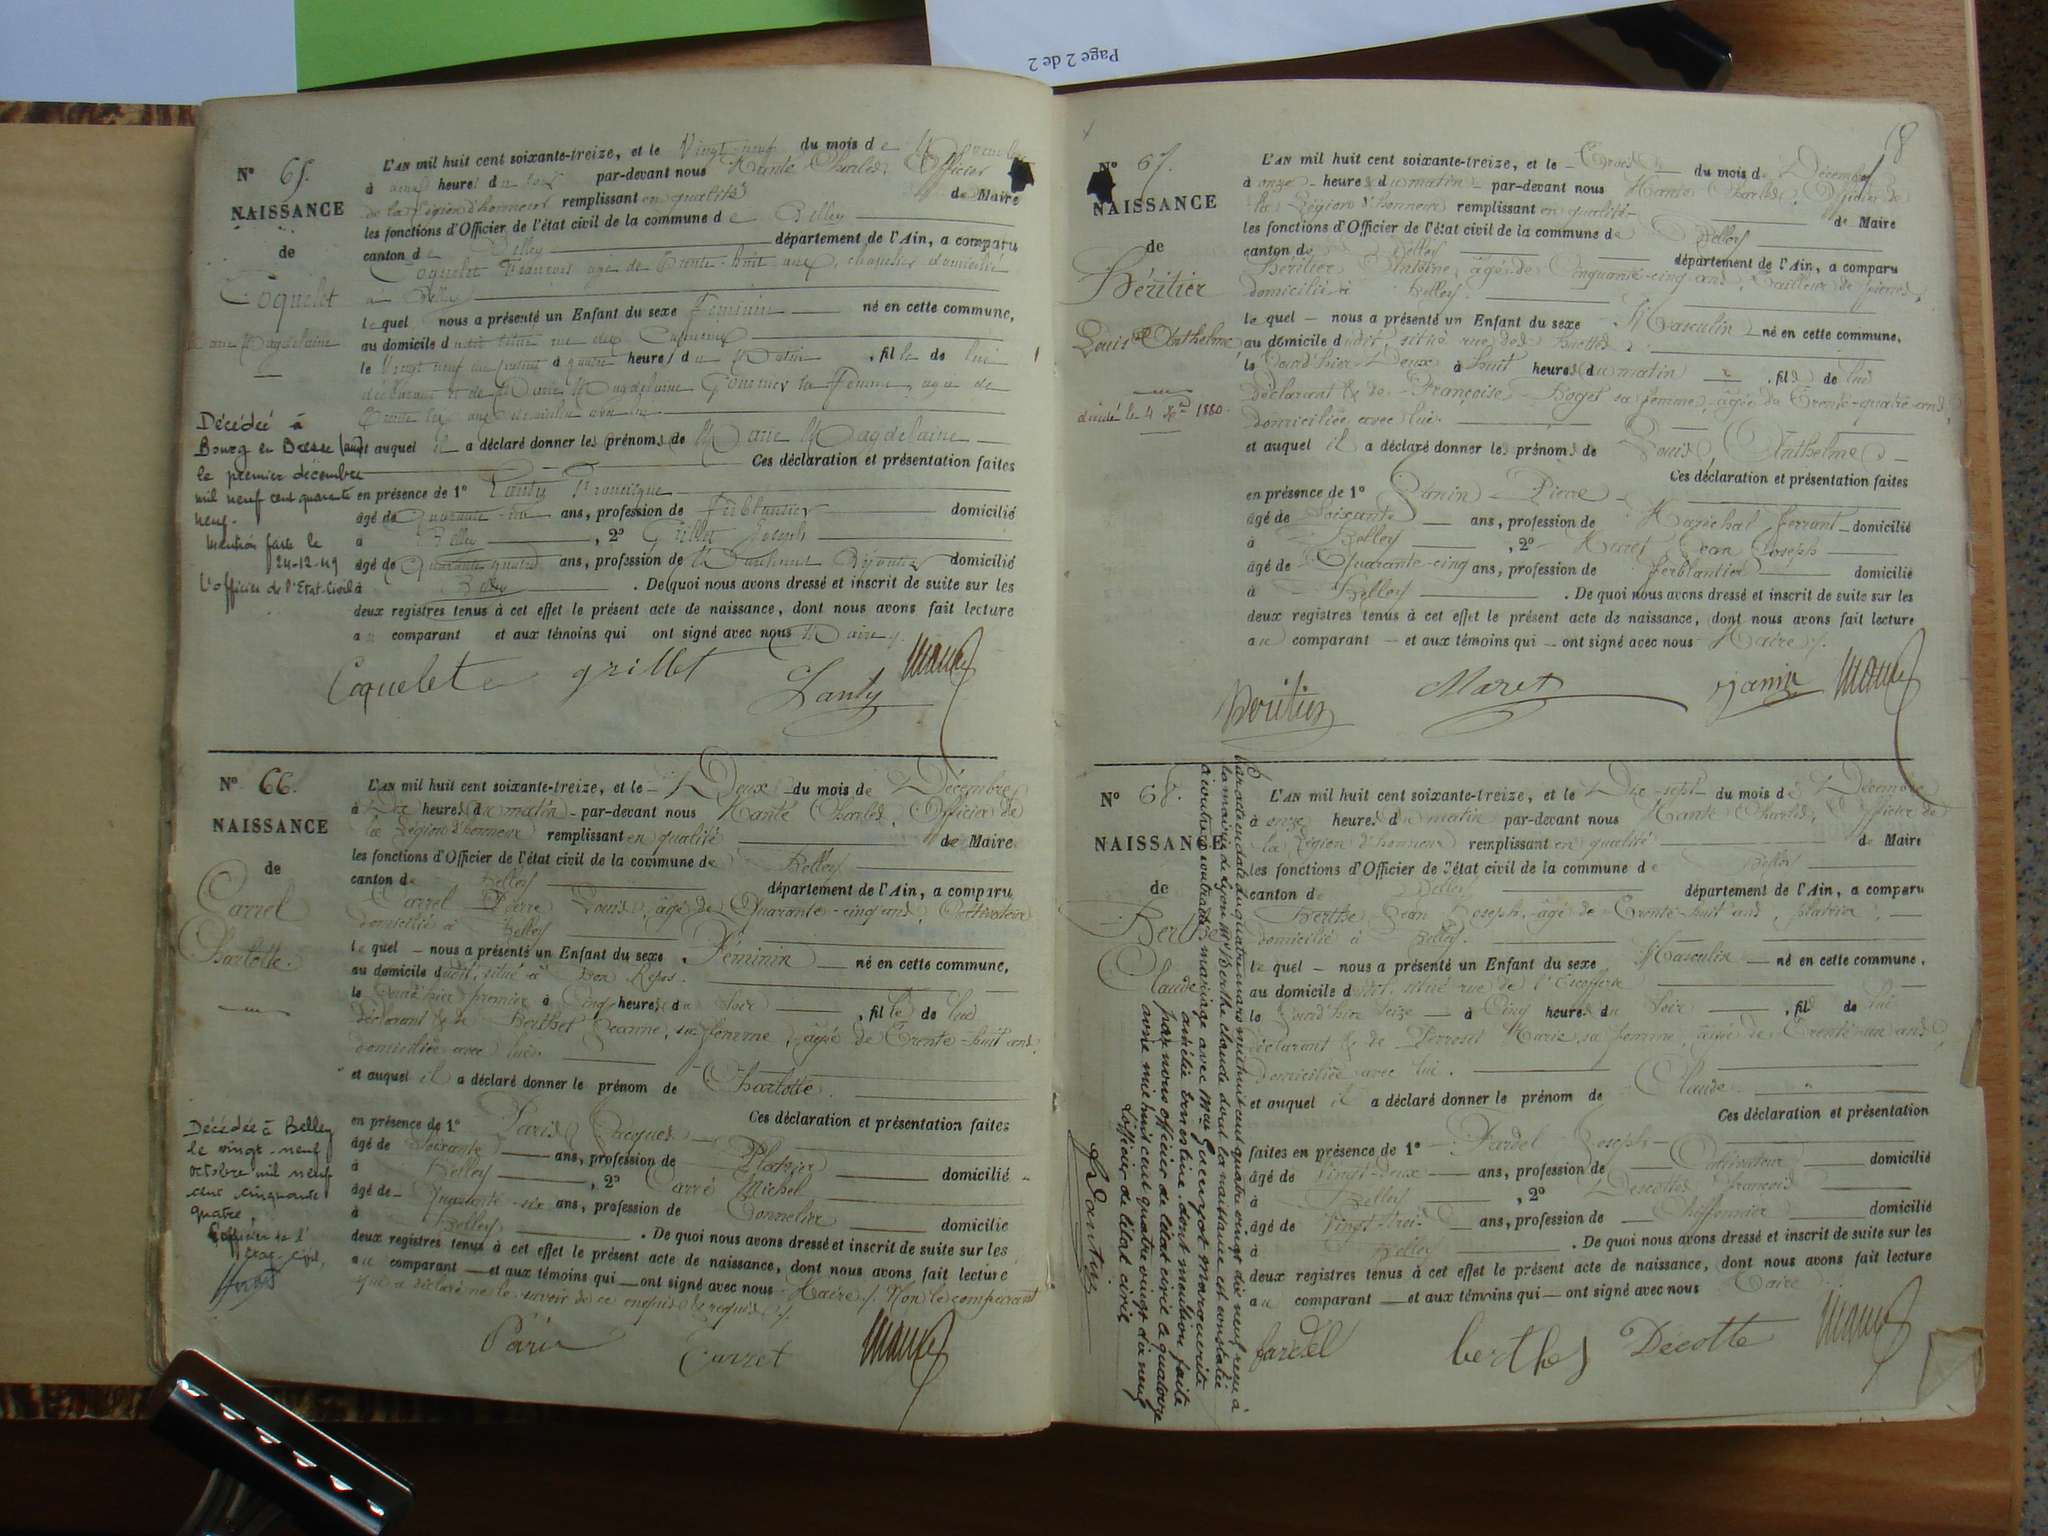 Page 2 de 2
N° 65.
NAISSANCE
de
Coquelet
Marie Magdelaine
Décédée à
Bourg en Bresse (Ain)
le premier décembre
mil neuf cent quarante
neuf.
Mention faite le
24-12-49
L'officier de l'Etat-Civil
L'AN mil huit cent soixante-treize, et le Vingt-neuf du mois de Novembre
à heures du soir par-devant nous Charles, Officier
de la Légion d'honneur remplissant en qualité de Maire
les fonctions d'Officier de l'état civil de la commune de Belley
canton de Belley département de l'Ain, a comparu
Coquelet François âgé de Trente-huit ans, domicilié
à Belley
lequel nous a présenté un Enfant du sexe Féminin né en cette commune,
au domicile dudit situé rue des
le Vingt neuf du présent à quatre heures du Matin, fille de lui
déclarant et de Marie Magdelaine sa femme, agée de
Trente ans domiciliée avec lui
et auquel il a déclaré donner les prénoms de Marie Magdelaine
Ces déclaration et présentation faites
en présence de 1° Lanty Francisque
âgé de Quarante ans, profession de Ferblantier domicilié
à Belley, 2° Grillet Joseph
âgé de Quarante quatre ans, profession de Marchand Bijoutier domicilié
à Belley. De quoi nous avons dressé et inscrit de suite sur les
deux registres tenus à cet effet le présent acte de naissance, dont nous avons fait lecture
au comparant et aux témoins qui ont signé avec nous Maire
Coquelet grillet Lanty
N° 66.
NAISSANCE
de
Carrel
Charlotte.
Décédée à Belley
le vingt-neuf
octobre mil neuf
cent cinquante
quatre,
L'officier de l'
Etat-Civil,
L'AN mil huit cent soixante-treize, et le Deux du mois de Décembre
à Dix heures du matin par-devant nous Charles, Officier de
la Légion d'honneur remplissant en qualité de Maire
les fonctions d'Officier de l'état civil de la commune de Belley
canton de Belley département de l'Ain, a comparu
Carrel Pierre Louis, âgé de Quarante-cinq ans, Cultivateur
domicilié à Belley
lequel nous a présenté un Enfant du sexe Féminin né en cette commune,
au domicile dudit, situé à Bon Repos.
le jour d'hier premier à Cinq heures du soir, fille de lui
déclarant & de Berthet Jeanne, sa femme, âgée de Trente-huit ans,
domiciliée avec lui.
et auquel il a déclaré donner le prénom de Charlotte.
Ces déclaration et présentation faites
en présence de 1° Paris Jacques
âgé de Soixante ans, profession de Platrier domicilié
à Belley, 2° Carré Michel
âgé de Quarante-six ans, profession de Tonnelier domicilié
à Belley. De quoi nous avons dressé et inscrit de suite sur les
deux registres tenus à cet effet le présent acte de naissance, dont nous avons fait lecture
au comparant et aux témoins qui ont signé avec nous Maire. Non le comparant
qui a déclaré ne le savoir de ce enquis & requis.
Paris
N° 67.
NAISSANCE
de
Héritier
Louis Anthelme
décédé le 4 Xbre 1880.
L'AN mil huit cent soixante-treize, et le Trois du mois de Décembre
à onze heures du matin par-devant nous Charles, Officier de
la Légion d'honneur remplissant en qualité de Maire
les fonctions d'Officier de l'état civil de la commune de Belley
canton de Belley département de l'Ain, a comparu
Héritier Antoine, âgé de Cinquante-cinq ans, Tailleur de pierres,
domicilié à Belley.
lequel nous a présenté un Enfant du sexe Masculin né en cette commune,
au domicile dudit, situé rue des
le Jour d'hier Deux à huit heures du matin, fils de lui
déclarant & de Françoise Boget sa femme, âgée de Trente-quatre ans,
domiciliée avec lui.
et auquel il a déclaré donner les prénoms de Louis Anthelme
Ces déclaration et présentation faites
en présence de 1° Janin Pierre
âgé de Soixante ans, profession de Maréchal ferrant domicilié
à Belley, 2° Maret Jean Joseph
âgé de Quarante-cinq ans, profession de ferblantier domicilié
à Belley. De quoi nous avons dressé et inscrit de suite sur les
deux registres tenus à cet effet le présent acte de naissance, dont nous avons fait lecture
au comparant et aux témoins qui ont signé avec nous Maire.
Heritier Maret janin
N° 68.
NAISSANCE
de
Berthe
Claude
Par acte en date du quatre mars mil huit cent quatre vingt dix neuf, reçu à
la mairie de Lyon, Mr Berthe Claude dont la naissance est constatée
ci-contre a contracté mariage avec Mlle Guerryot Marguerite
dont mention faite
par nous officier de l'état civil le quatorze
avril mil huit cent quatre vingt dix neuf
L'officier de l'état civil
L'AN mil huit cent soixante-treize, et le Dix-sept du mois de Décembre
à onze heures du matin par-devant nous Charles, Officier de
la Légion d'honneur remplissant en qualité de Maire
les fonctions d'Officier de l'état civil de la commune de Belley
canton de Belley département de l'Ain, a comparu
Berthe Jean Joseph, âgé de Trente-huit ans, platrier,
domicilié à Belley.
lequel nous a présenté un Enfant du sexe Masculin né en cette commune.
au domicile dudit, situé rue de
le Jour d'hier Seize à Cinq heures du soir, fils de lui
déclarant & de Perroset Marie, sa femme, âgée de Trente-un ans,
domiciliée avec lui.
et auquel il a déclaré donner le prénom de Claude
Ces déclaration et présentation
faites en présence de 1° Fardel Joseph
âgé de Vingt-deux ans, profession de Cultivateur domicilié
à Belley, 2° Descottes François
âgé de Vingt-trois ans, profession de Chiffonnier domicilié
à Belley. De quoi nous avons dressé et inscrit de suite sur les
deux registres tenus à cet effet le présent acte de naissance, dont nous avons fait lecture
au comparant et aux témoins qui ont signé avec nous Maire
fardel berthe Décotte